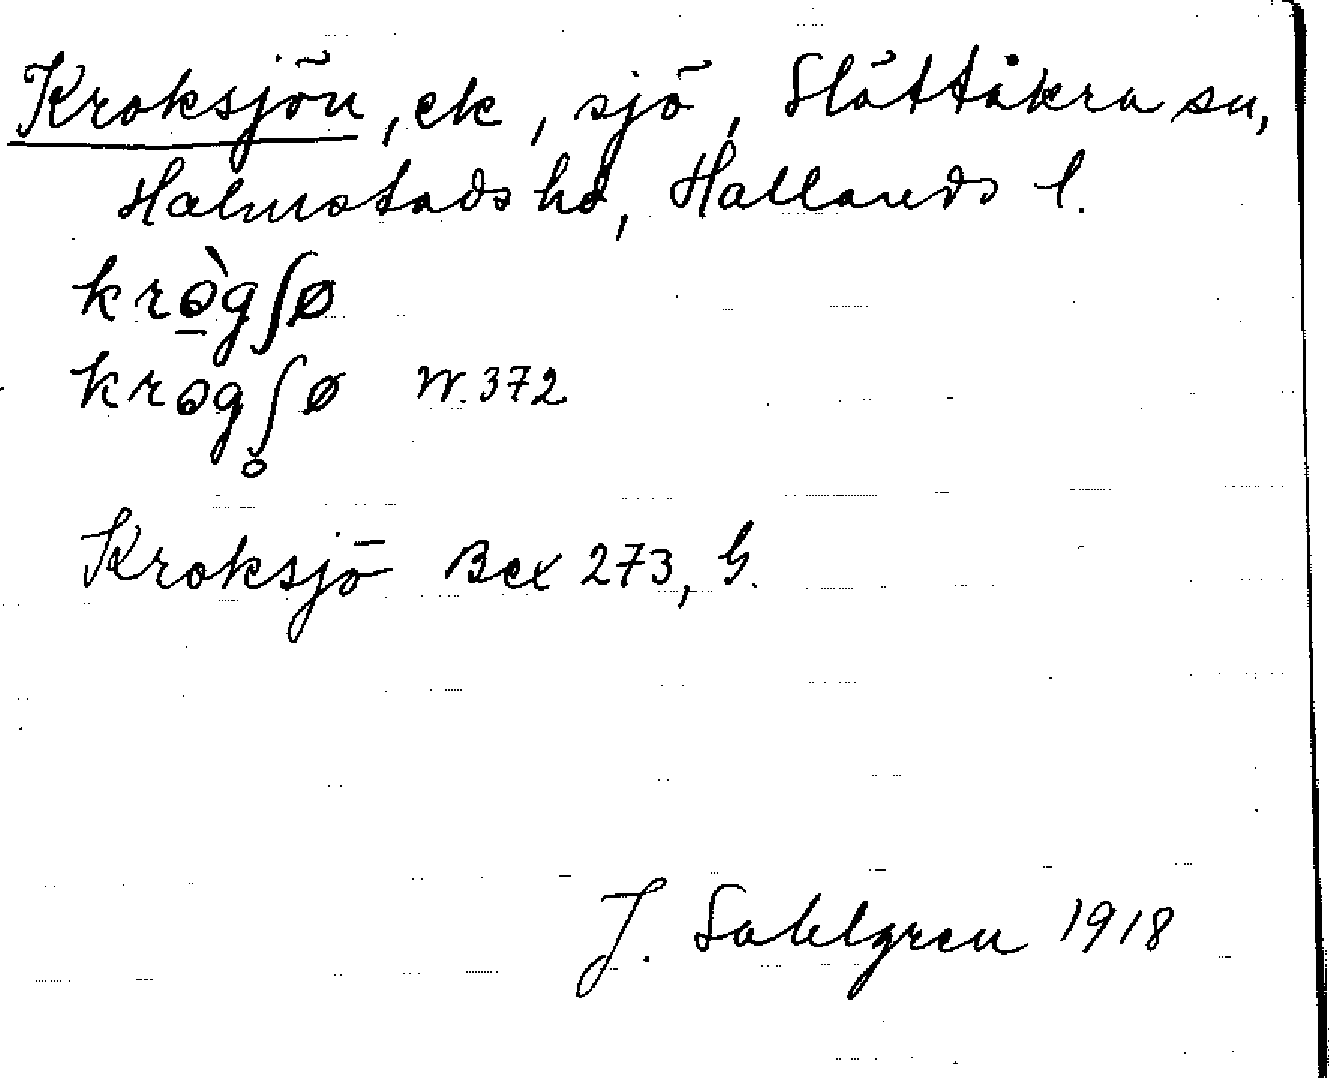 Kroksjön, ek, sjö, Slättåkra sn,
Halmstads hd, Hallands l.
krə̠̀gʃø
krəgʃ̥ø W. 372
Kroksjö Bex 273, G.
J. Sahlgren 1918